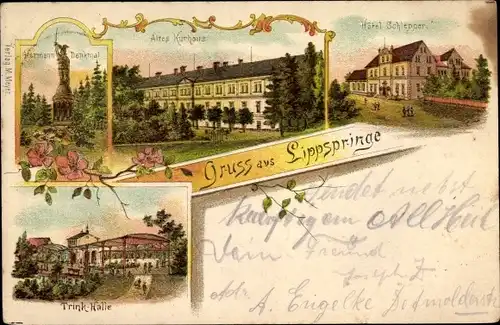 Verlag W. Meyer
Hermann Denkmal
Altes Kurhaus
Hôtel Schlepper
Gruss aus Lippspringe
Trink-Halle
Sendet nebst
All Heil
Dein Freund
Joseph
Adr. A. Engelke Detmolderstr